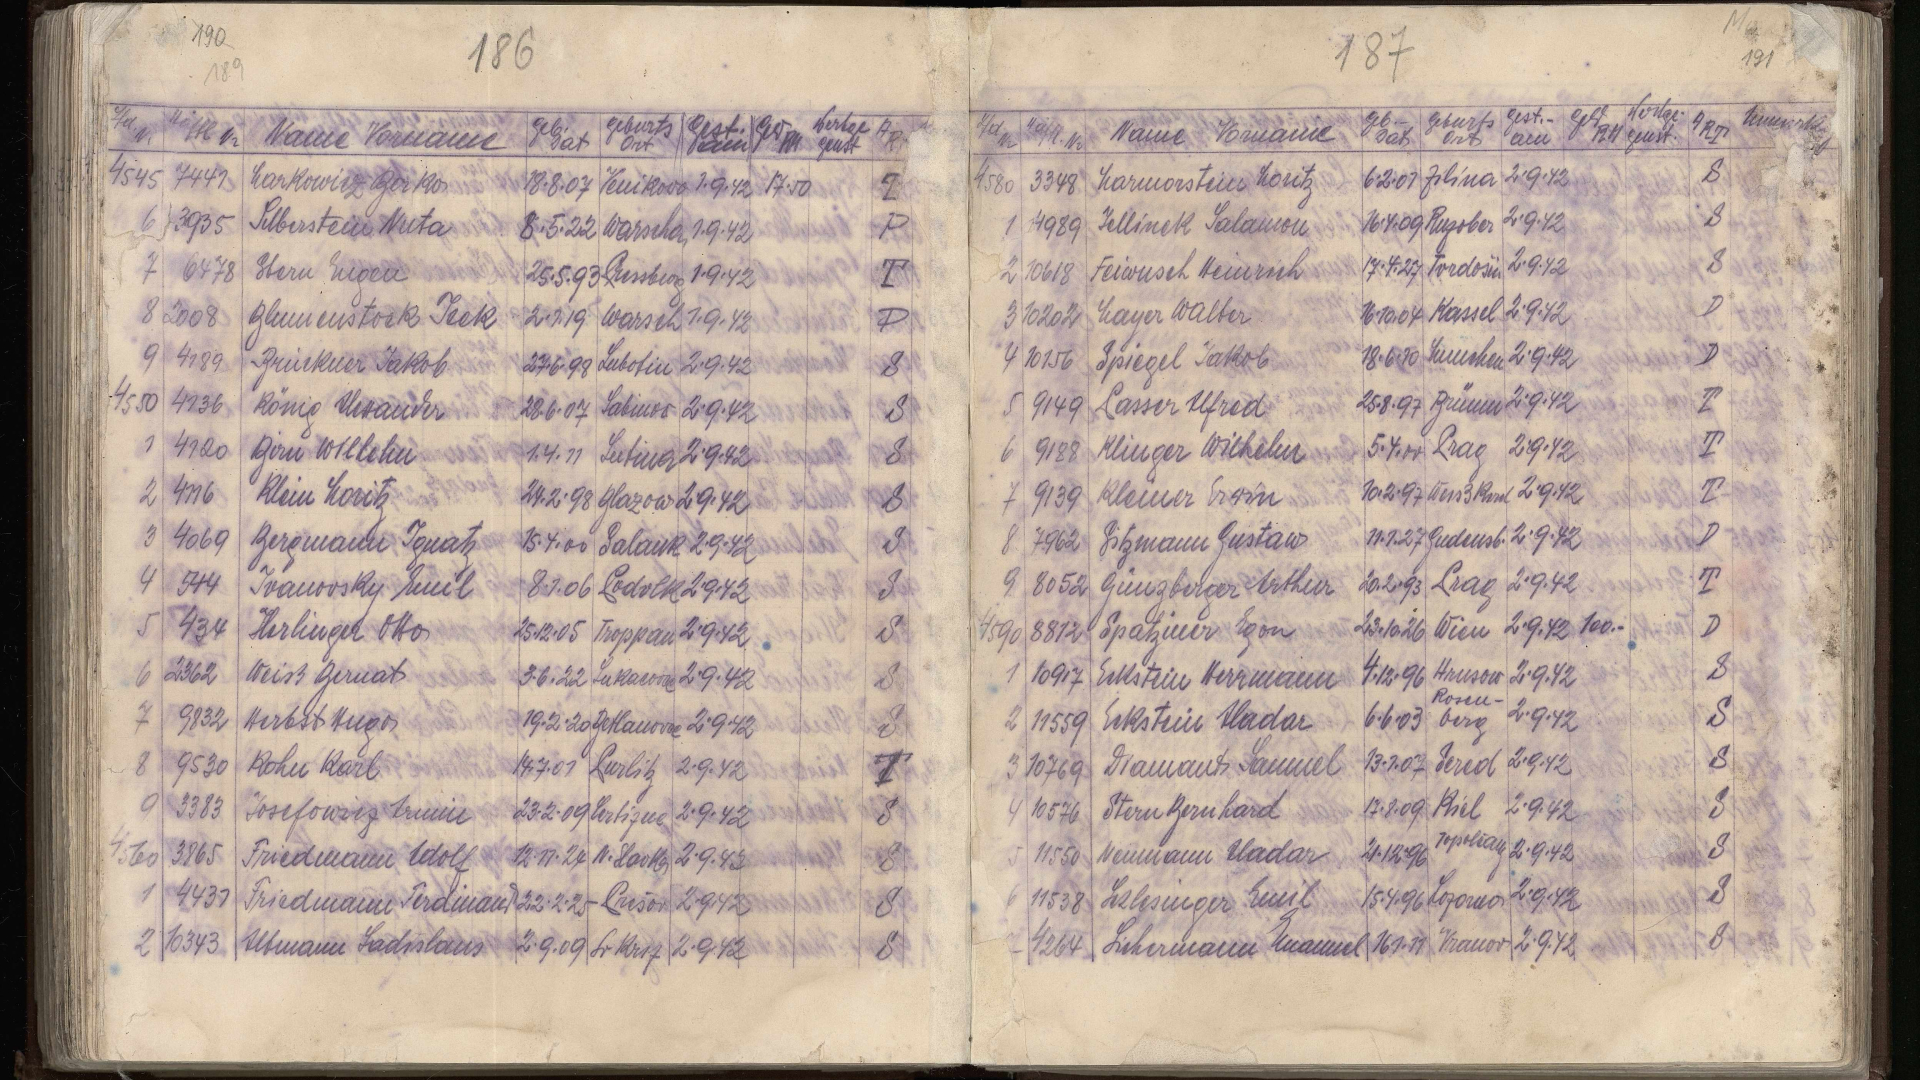 190
189
186
Lfd. Nr. Häftl. Nr. Name Vorname Geb. Dat Geburts Ort Gest. am Geld RM Wertgegenst A R T
4545 7441 Markowicz Gerko 18.8.07 1.9.42 17.50 T
6 3935 Silberstein Nuta 8.5.22 Warschau 1.9.42 P
7 6478 Stern Eugen 25.5.93 Pressburg 1.9.42 T
8 2008 Blumenstock Icek 2.1.19 Warsch 1.9.42 P
9 4189 Brückner Jakob 27.6.98 Lubotin 2.9.42 S
4550 4136 König Alexander 28.6.07 Sabinov 2.9.42 S
1 4120 Björn Wilhelm 1.4.11 Lutina 2.9.42 S
2 4116 Klein Moritz 24.2.98 Glazow 2.9.42 S
3 4069 Bergmann Ignatz 15.4.00 Palank 2.9.42 S
4 544 Ivanovsky Emil 8.1.06 Podolk 2.9.42 S
5 434 Herlinger Otto 25.12.05 Troppau 2.9.42 S
6 2362 Weiß Bernat 3.6.22 2.9.42 S
7 9832 Herbst Hugo 19.2.20 2.9.42 S
8 9530 Kohn Karl 14.7.01 2.9.42 T
9 3383 Josefowicz Armin 23.2.09 2.9.42 S
4560 3865 Friedmann Adolf 12.11.24 2.9.42 S
1 4437 Friedmann Ferdinand 22.2.25 Prešov 2.9.42 S
2 10343 Altmann Ladislaus 2.9.09 Sv Kriz 2.9.42 S
187
191
Lfd Nr Häftl. Nr Name Vorname Geb. Dat Geburts Ort Gest. am Geld RM Wertgegenst. A R T
4580 3348 Marmorstein Moritz 6.2.01 Zilina 2.9.42 S
1 4989 Jellinek Salamon 16.4.09 2.9.42 S
2 10618 Feiwusch Heinrich 17.4.27 Tvrdošin 2.9.42 S
3 10202 Mayer Walter 16.10.04 Kassel 2.9.42 D
4 10156 Spiegel Jakob 18.6.10 München 2.9.42 D
5 9149 Lasser Alfred 25.8.97 Brünn 2.9.42 T
6 9188 Klinger Wilhelm 5.4.00 Prag 2.9.42 T
7 9139 Kleiner Erwin 10.2.97 2.9.42 T
8 7962 Sitzmann Gustaw 11.1.27 Gudensb. 2.9.42 D
9 8052 Günzberger Arthur 20.2.93 Prag 2.9.42 T
4590 8812 Spatziner Egon 23.10.26 Wien 2.9.42 100.- D
1 10917 Eckstein Herrmann 4.12.96 Hrusow 2.9.42 S
2 11559 Eckstein Aladar 6.6.03 Rosenberg 2.9.42 S
3 10769 Diamant Samuel 13.1.07 Sered 2.9.42 S
4 10576 Stern Bernhard 17.1.09 Kiel 2.9.42 S
5 11550 Neumann Aladar 21.12.96 Topolcany 2.9.42 S
6 11538 Schlesinger Emil 15.4.96 Lozorno 2.9.42 S
4264 Lichermann Emanuel 16.1.11 Vranov 2.9.42 S